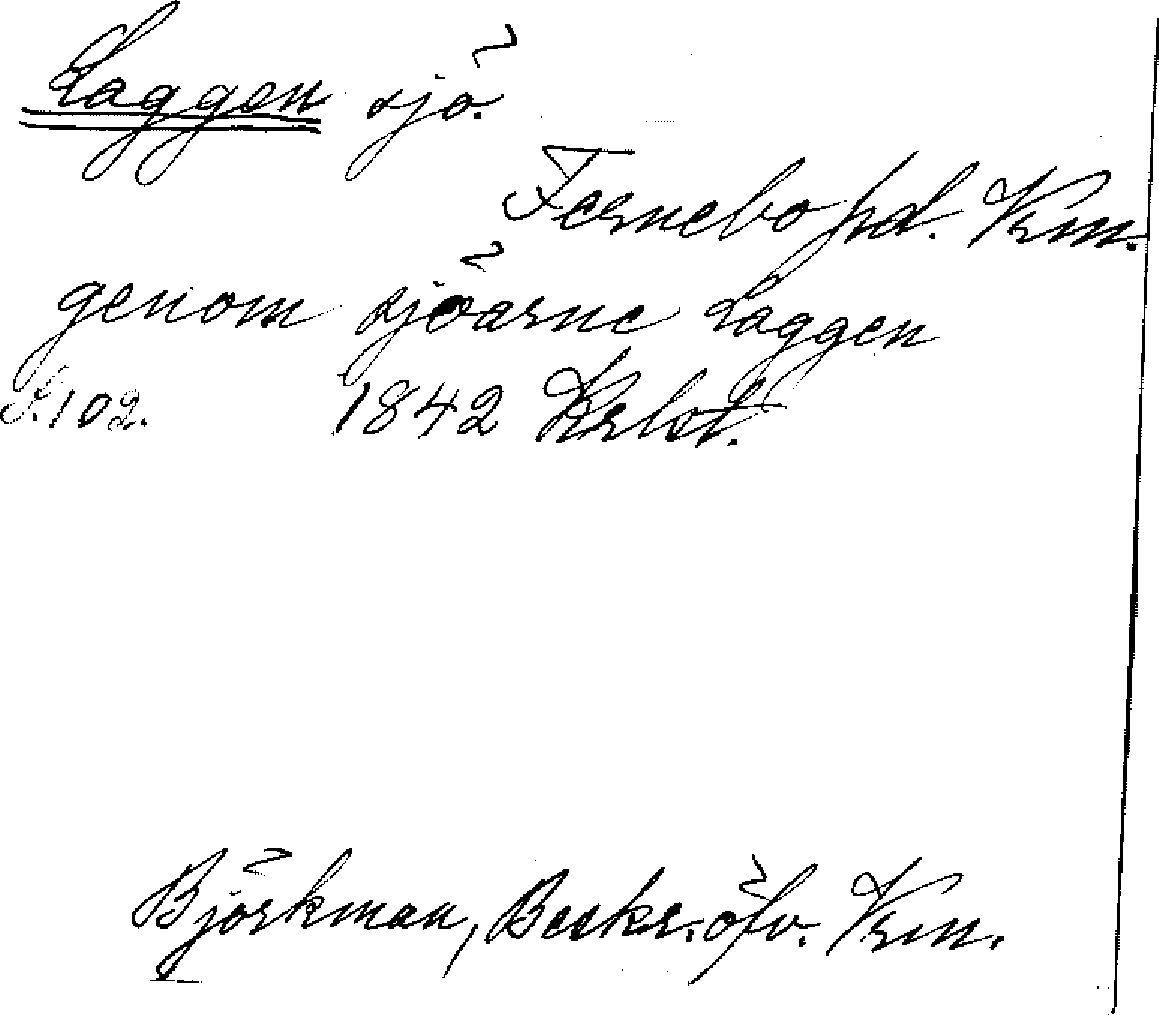 Laggen sjö.
Fernebo hd. Vrm.
genom sjöarne Laggen
S. 102. 1842 Krlst.
Björkman, Beskr. öfv. Vrm.